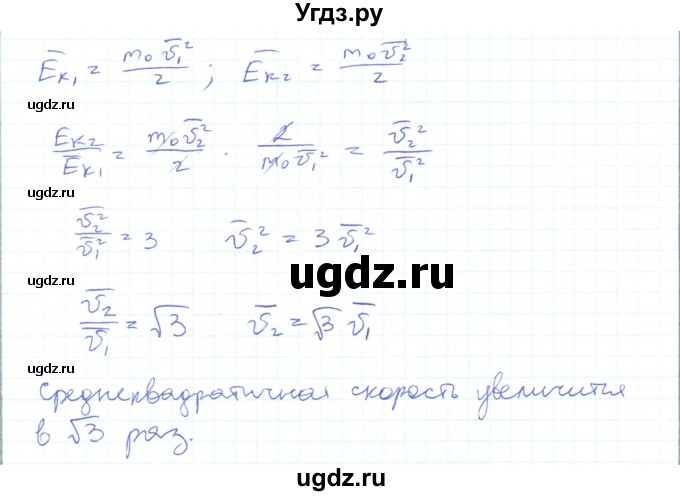 Угдз.ру
Ēк₁ = m₀v̄₁²/2 ; Ēк₂ = m₀v̄₂²/2
ugdz.ru
Ēк₂/Ēк₁ = m₀v̄₂²/2 · 2/m₀v̄₁² = v̄₂²/v̄₁²
ugdz.ru
v̄₂²/v̄₁² = 3 v̄₂² = 3 v̄₁²
ugdz.ru
ugdz.ru
v̄₂/v̄₁ = √3 v̄₂ = √3 v̄₁
ugdz.ru
Среднеквадратичная скорость увеличится
в √3 раз.
ugdz.ru
ugdz.ru